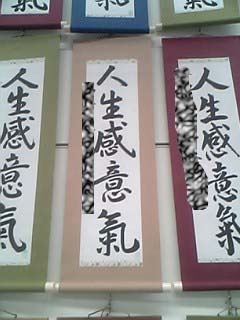 人生感意氣
人生感意氣
人生感意氣